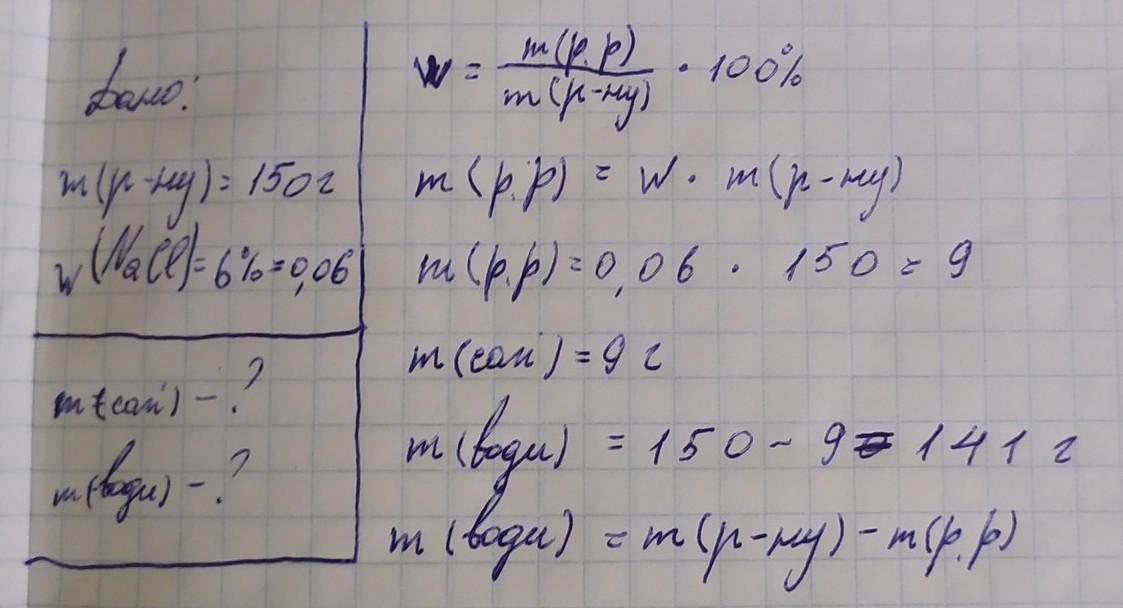 Дано:
m(р-ну) = 150 г
w(NaCl) = 6% = 0,06
m(солі) - ?
m(води) - ?
w = m(р.р) / m(р-ну) · 100%
m(р.р) = w · m(р-ну)
m(р.р) = 0,06 · 150 = 9
m(солі) = 9 г
m(води) = 150 - 9 = 141 г
m(води) = m(р-ну) - m(р.р)